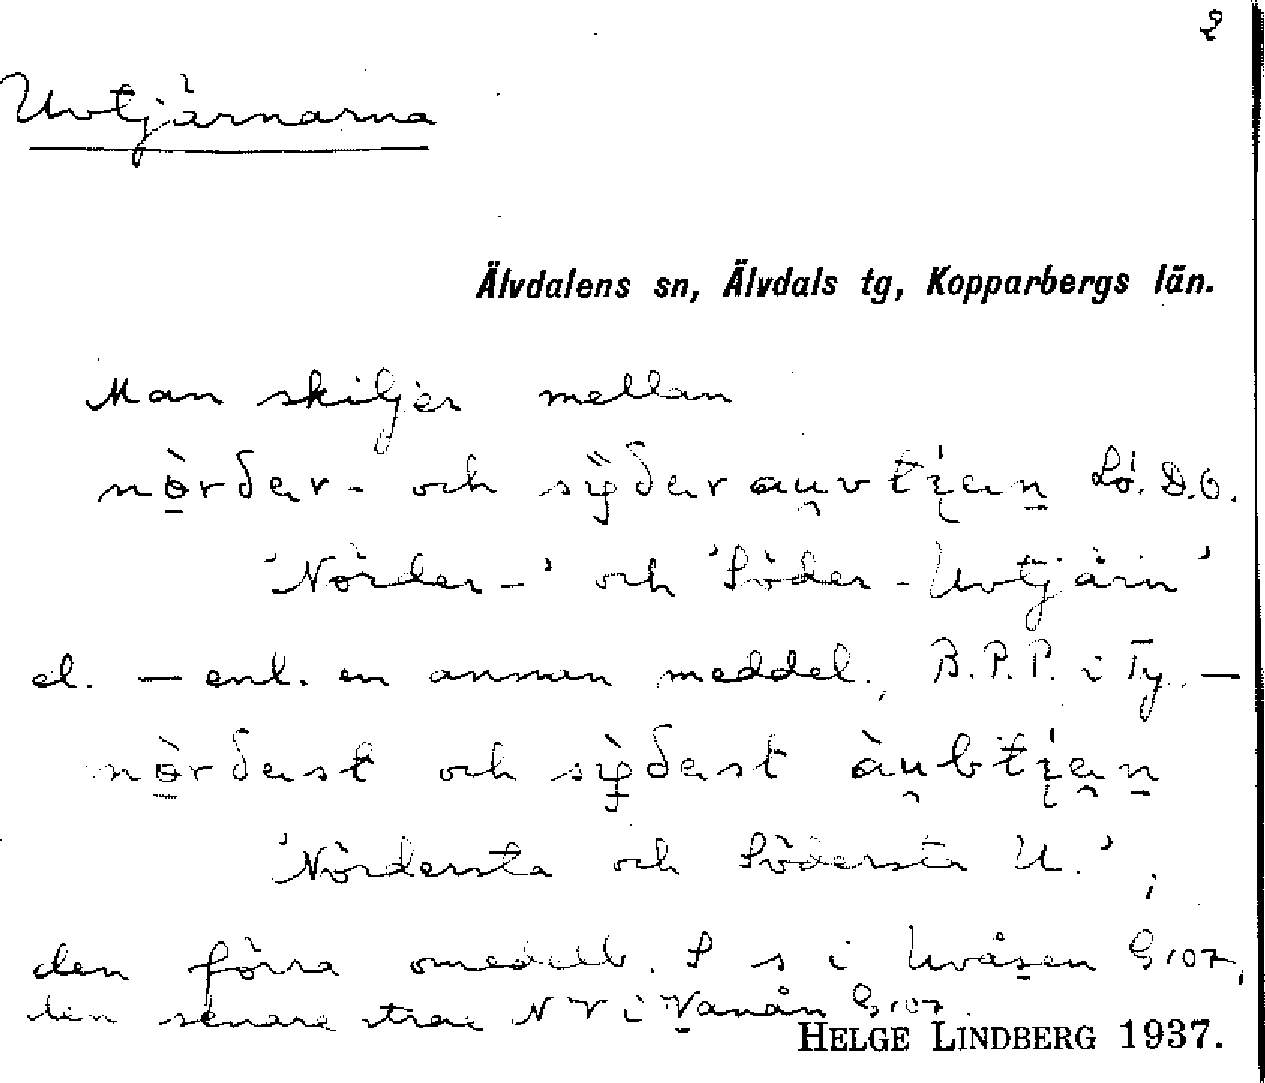 2
Uvtjärnarna
Älvdalens sn, Älvdals tg, Kopparbergs län.
Man skiljer mellan
och
'Nörder-' och 'Söder-Uvtjärn'
el. — enl. en annan meddel., B.P.P. i Ty. —
och
'Nördersta och Södersta U.';
den förra omedelb. S s i Uvåsen G107,
den senare strax NV i Vanån G107.
HELGE LINDBERG 1937.